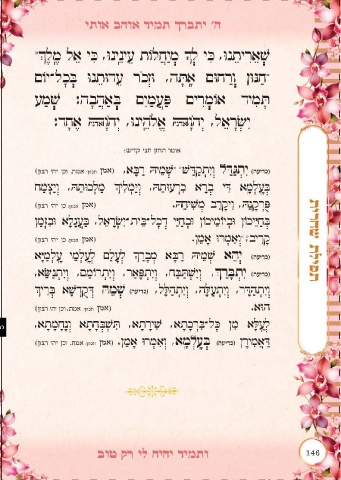 ה' יתברך תמיד אוהב אותי
שְׁאֵרִיתֵנוּ, כִּי לְךָ מְיַחֲלוֹת עֵינֵינוּ, כִּי אֵל מֶלֶךְ
חַנּוּן וְרַחוּם אָתָּה, וּזְכֹר עֵדוּתֵנוּ בְּכָל־יוֹם
תָּמִיד אוֹמְרִים פַּעֲמַיִם בְּאַהֲבָה: שְׁמַע
יִשְׂרָאֵל, יְהֹוָה אֱלֹהֵינוּ, יְהֹוָה אֶחָד:
אומר החזן חצי קדיש:
(כריעה) יִתְגַּדַּל וְיִתְקַדַּשׁ שְׁמֵיהּ רַבָּא, (אמן
בְּעָלְמָא דִּי בְרָא כִרְעוּתֵהּ, וְיַמְלִיךְ מַלְכוּתֵהּ, וְיַצְמַח
פֻּרְקָנֵהּ, וִיקָרֵב מְשִׁיחֵהּ. (אמן
בְּחַיֵּיכוֹן וּבְיוֹמֵיכוֹן וּבְחַיֵּי דְכָל־בֵּית־יִשְׂרָאֵל, בַּעֲגָלָא וּבִזְמַן
קָרִיב, וְאִמְרוּ אָמֵן. (אמן
(כריעה) יְהֵא שְׁמֵיהּ רַבָּא מְבָרַךְ לְעָלַם לְעָלְמֵי עָלְמַיָּא
(כריעה) יִתְבָּרַךְ, וְיִשְׁתַּבַּח, וְיִתְפָּאַר, וְיִתְרוֹמַם, וְיִתְנַשֵּׂא,
וְיִתְהַדָּר, וְיִתְעַלֶּה, וְיִתְהַלָּל, (כריעה) שְׁמֵהּ דְּקֻדְשָׁא בְּרִיךְ
הוּא. (אמן
לְעֵלָּא מִן כָּל־בִּרְכָתָא, שִׁירָתָא, תֻּשְׁבְּחָתָא וְנֶחֱמָתָא,
דַּאֲמִירָן (כריעה) בְּעָלְמָא, וְאִמְרוּ אָמֵן. (אמן
תפילת שחרית
ותמיד יהיה לי רק טוב
146